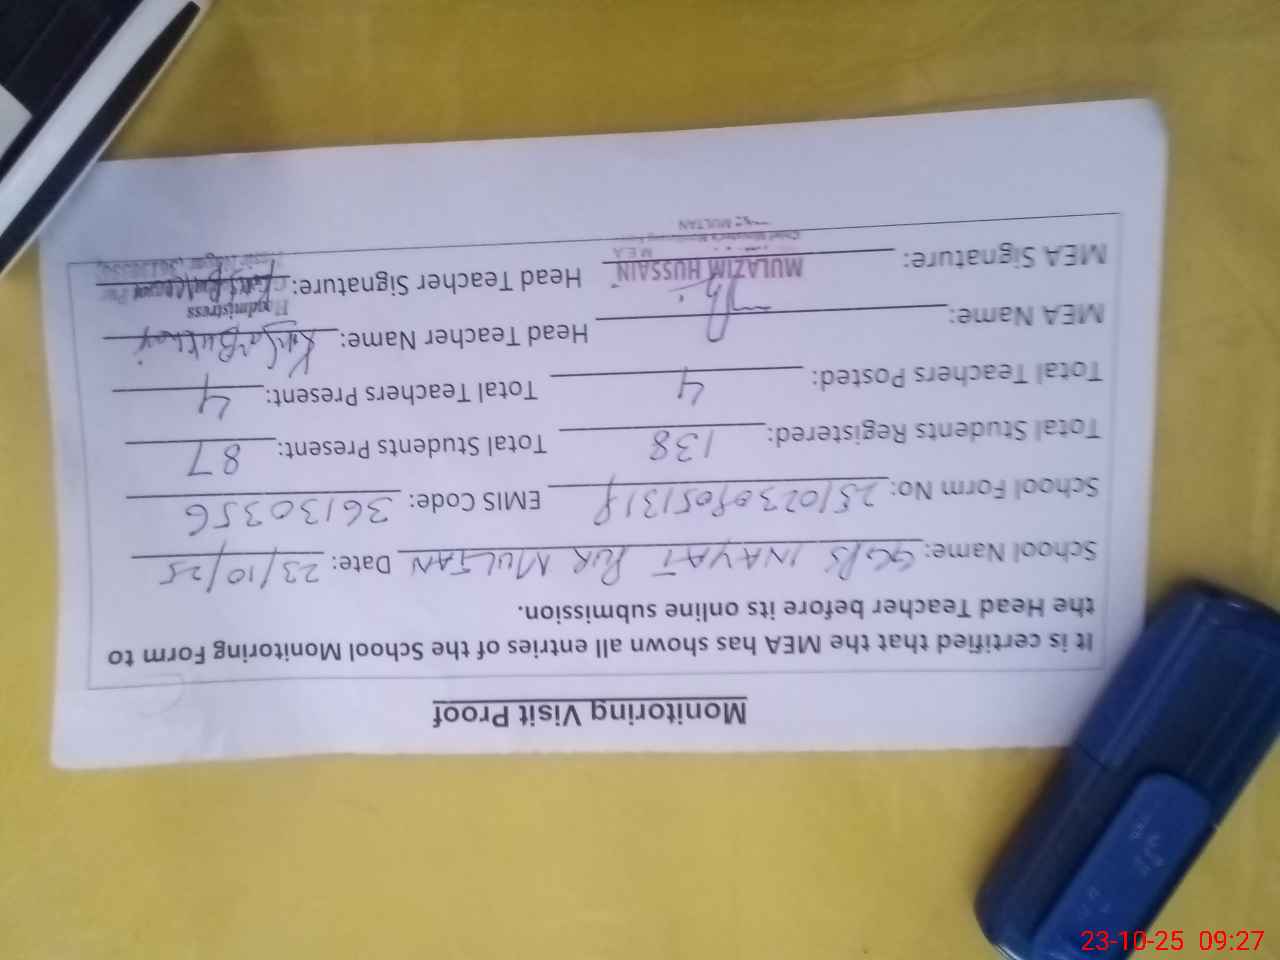 Monitoring Visit Proof
It is certified that the MEA has shown all entries of the School Monitoring Form to
the Head Teacher before its online submission.
School Name: GGPS INAYAT PUR MULTAN Date: 23/10/25
School Form No: EMIS Code: 36130356
Total Students Registered: 138 Total Students Present: 87
Total Teachers Posted: 4 Total Teachers Present: 4
MEA Name: Head Teacher Name: Bukhari
MEA Signature: MULAZIM HUSSAIN Head Teacher Signature:
Headmistress
M E A
MULTAN
23-10-25 09:27